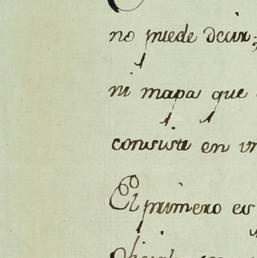 no puede decir;
ni mapa que
consiste en un
El primero es